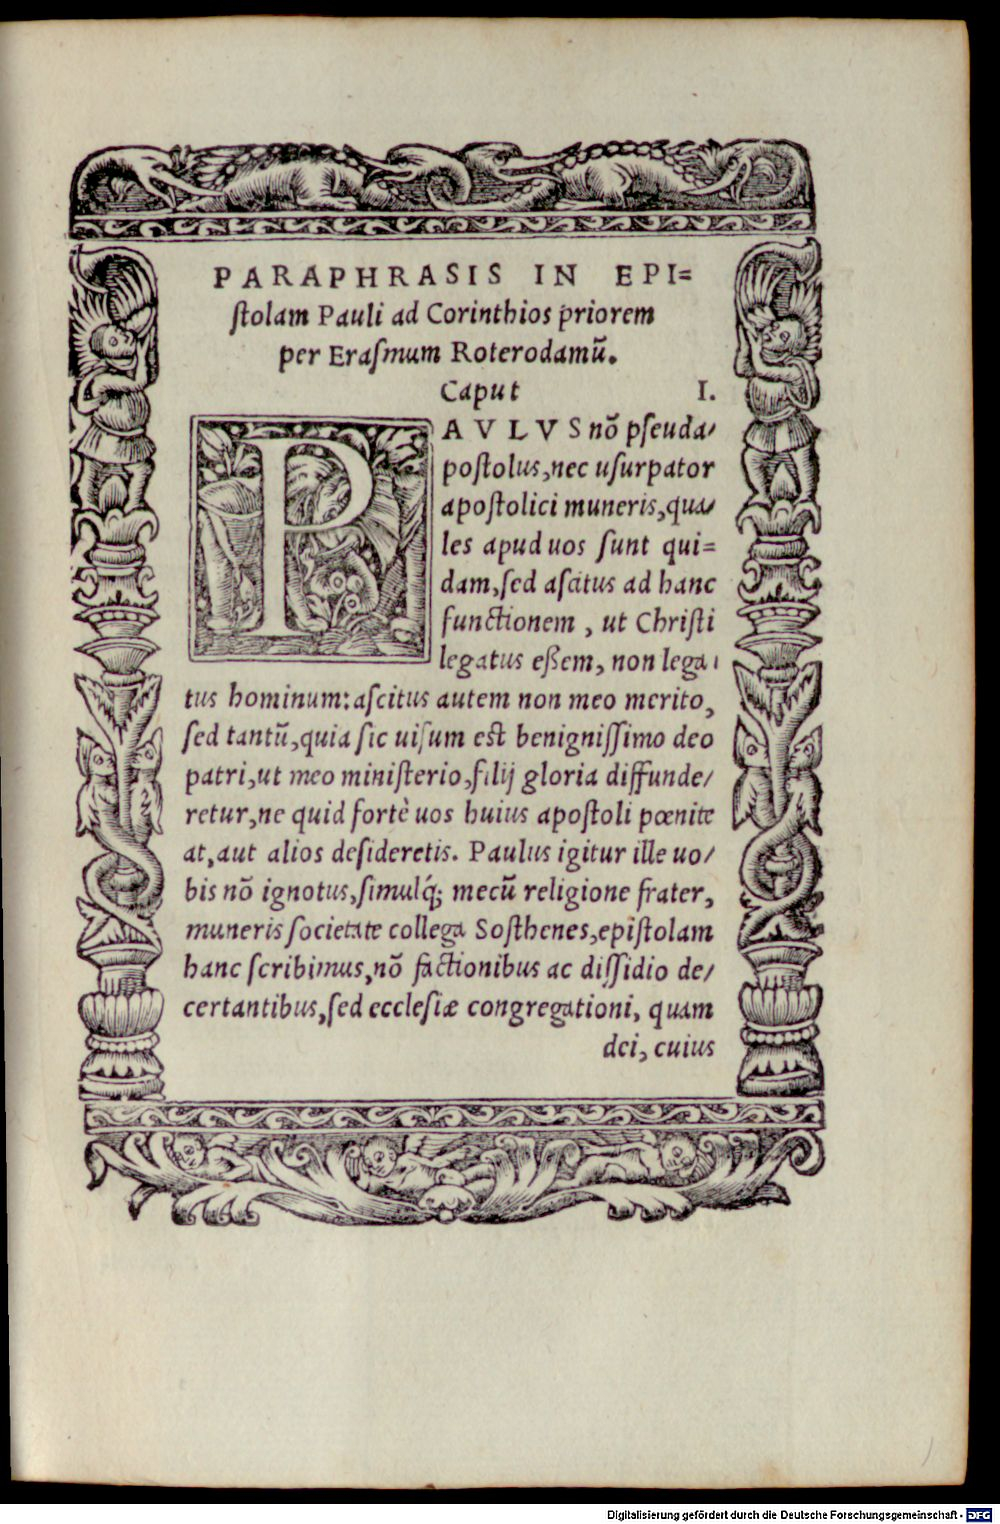 PARAPHRASIS IN EPI=
ſtolam Pauli ad Corinthios priorem
per Eraſmum Roterodamũ.
Caput I.
PAVLVS nõ pſeuda/
poſtolus, nec uſurpator
apoſtolici muneris, qua/
les apud uos ſunt qui=
dam, ſed aſcitus ad hanc
functionem, ut Chriſti
legatus eßem, non lega/
tus hominum: aſcitus autem non meo merito,
ſed tantũ, quia ſic uiſum eſt benigniſſimo deo
patri, ut meo miniſterio, filij gloria diffunde/
retur, ne quid fortè uos huius apoſtoli pœnite
at, aut alios deſideretis. Paulus igitur ille uo/
bis nõ ignotus, ſimulq́; mecũ religione frater,
muneris ſocietate collega Soſthenes, epiſtolam
hanc ſcribimus, nõ factionibus ac diſſidio de/
certantibus, ſed eccleſiæ congregationi, quam
dei, cuius
Digitalisierung gefördert durch die Deutsche Forschungsgemeinschaft - DFG